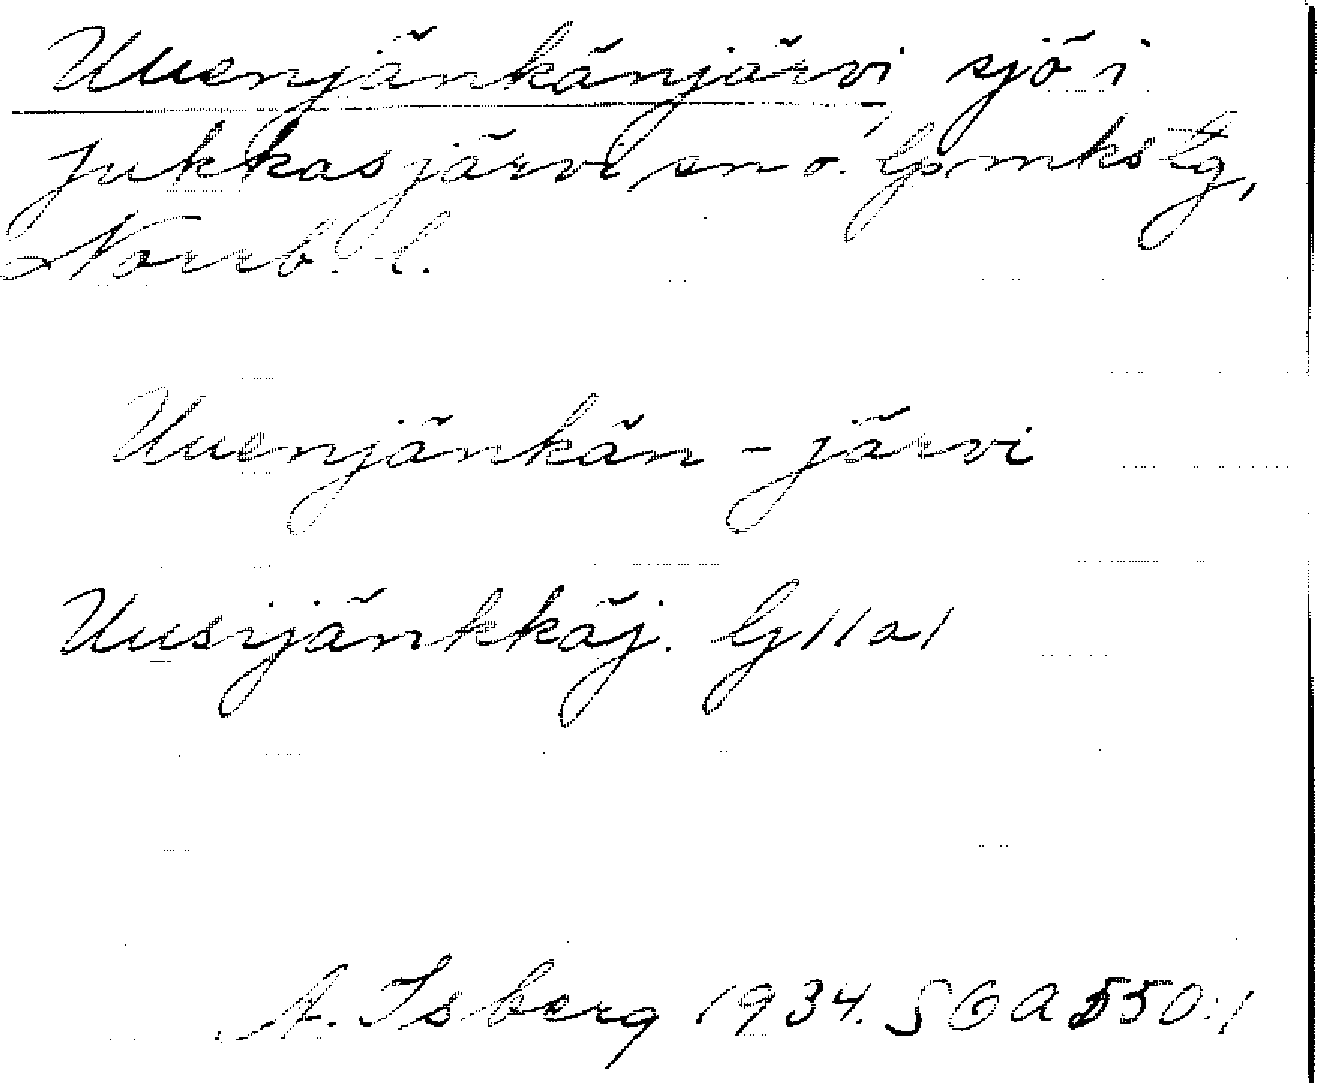 Uuenjänkänjärvi, sjö i
Jukkasjärvi sn o. lpmkstg,
Norrb. l.
Uuenjänkän - järvi
Uusijänkkäj. G 11 a 1
A. Isberg 1934. SOA 550:1